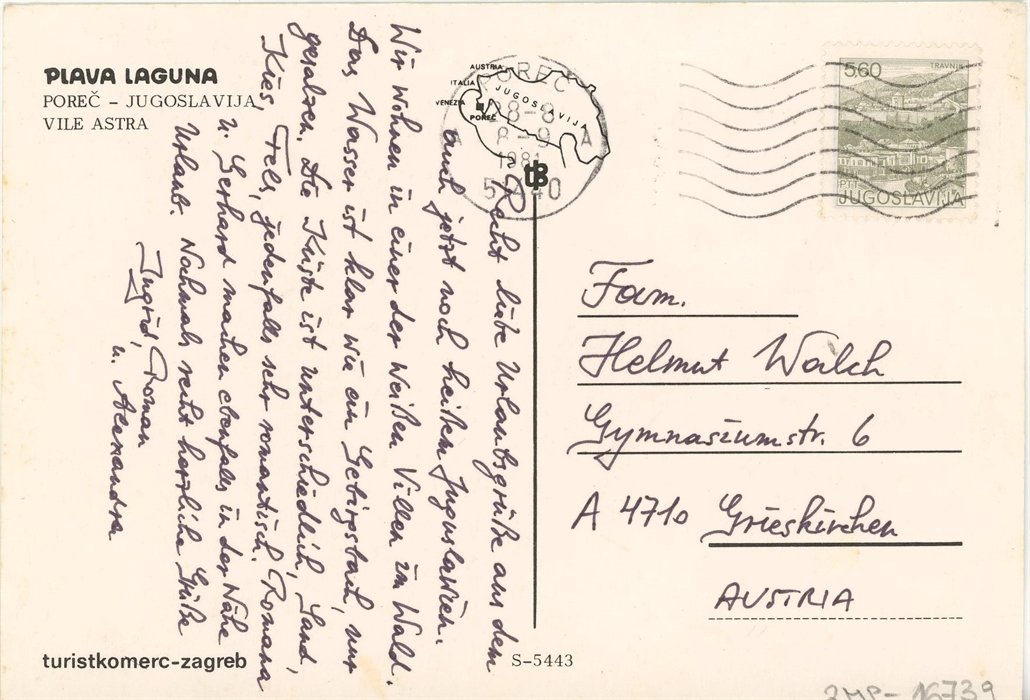 PLAVA LAGUNA
POREČ – JUGOSLAVIJA
VILE ASTRA
AUSTRIA
ITALIA
VENEZIA
POREČ
JUGOSLAVIJA
POREČ
28-8
8-9
A
1981
TRAVNIK
5,60
PTT
JUGOSLAVIJA
Recht liebe Urlaubsgrüße aus dem
auch jetzt noch heißen Jugoslavien.
Wir wohnen in einer der weißen Villen im Wald.
Das Wasser ist klar wie ein Gebirgsbach, nur
gesalzen. Die Küste ist unterschiedlich, Sand,
Kies, Fels, jedenfalls sehr romantisch. Romana
u. Gerhard machen ebenfalls in der Nähe
Urlaub. Nochmals recht herzliche Grüße
Ingrid, Roman
u. Alexandra
Fam.
Helmut Walch
Gymnasiumstr. 6
A 4710 Grieskirchen
AUSTRIA
turistkomerc-zagreb
S-5443